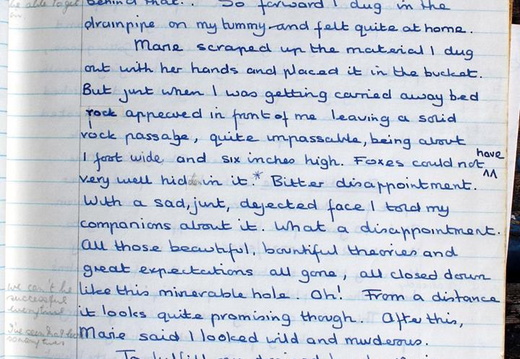 behind that. So forward I dug in the
drainpipe on my tummy and felt quite at home.
Marie scraped up the material I dug
out with her hands and placed it in the bucket.
But just when I was getting carried away bed
rock appeared in front of me leaving a solid
rock passage, quite impassable, being about
1 foot wide and six inches high. Foxes could not have
very well hid in it.* Bitter disappointment.
With a sad, just, dejected face I told my
companions about it. What a disappointment.
All those beautiful, bountiful theories and
great expectations all gone, all closed down
like this miserable hole. Oh! From a distance
it looks quite promising though. After this,
Marie said I looked wild and murderous.
we can't be
successful
everytime